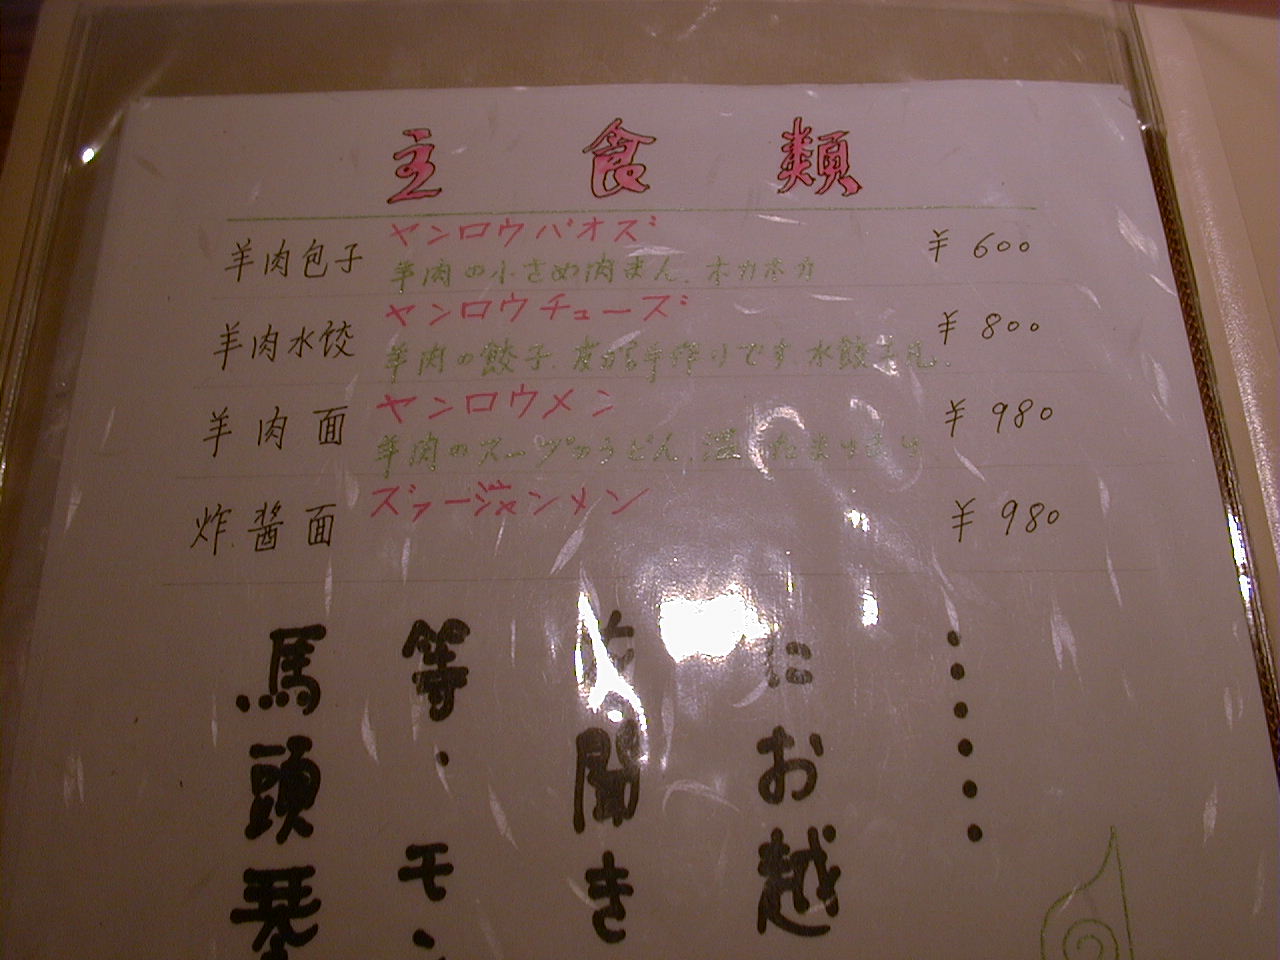 主食類
羊肉包子 ヤンロウバオズ ¥600
羊肉の小さめ肉まん、ホカホカ
羊肉水饺 ヤンロウチューズ ¥800
羊肉の餃子、皮から手作りです、水餃子凡
羊肉面 ヤンロウメン ¥980
羊肉のスープのうどん、温
炸醤面 ズァージャンメン ¥980
馬頭琴
等・モン
お聞き
にお越
・・・・・・